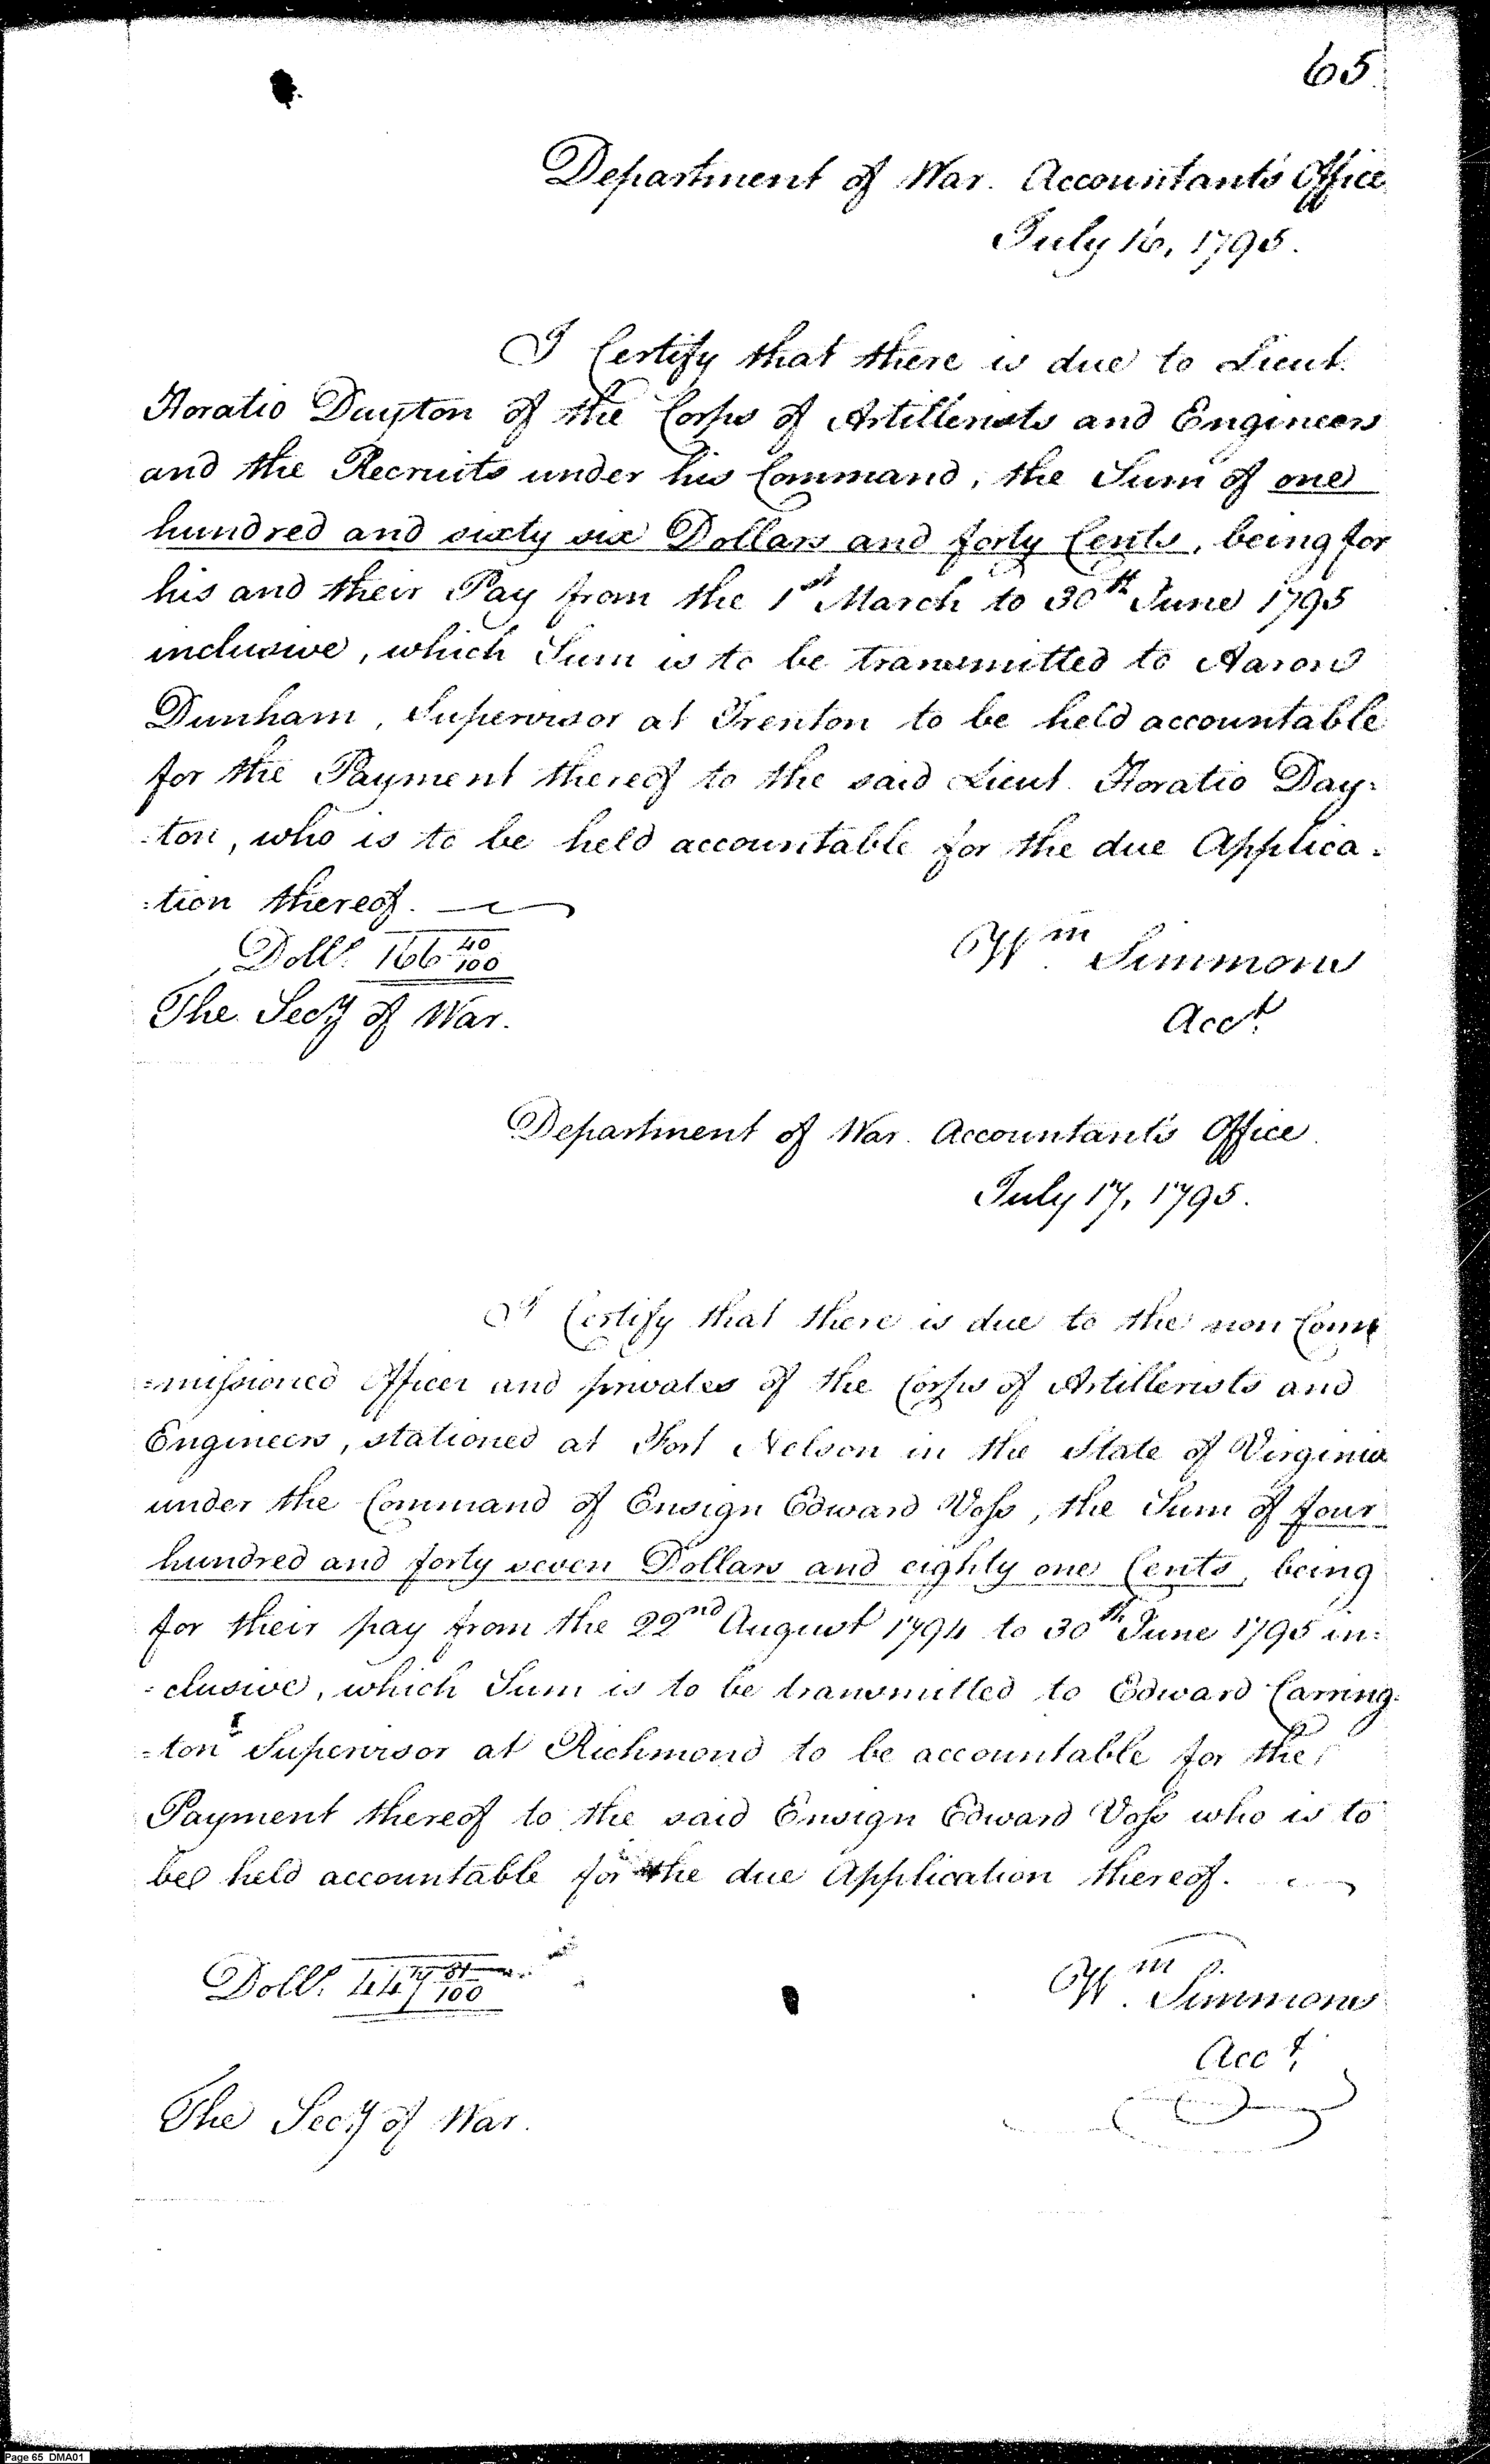 65
Department of War. Accountant's Office
July 16, 1795.
I Certify that there is due to Lieut.
Horatio Dayton of the Corps of Artillerists and Engineers
and the Recruits under his Command, the Sum of one
hundred and sixty six Dollars and forty Cents, being for
his and their Pay from the 1st March to 30th June 1795
inclusive, which Sum is to be transmitted to Aaron
Dunham, Supervisor at Trenton to be held accountable
for the Payment thereof to the said Lieut. Horatio Day=
=ton, who is to be held accountable for the due Applica=
=tion thereof.
Dolls. 166 40/100
Wm. Simmons
The Secy of War.
Acct.
Department of War. Accountant's Office.
July 17, 1795.
I Certify that there is due to the non Com
=missioned Officer and privates of the Corps of Artillerists and
Engineers, stationed at Fort Nelson in the State of Virginia
under the Command of Ensign Edward Voss, the Sum of four
hundred and forty seven Dollars and eighty one Cents, being
for their pay from the 22nd August 1794 to 30th June 1795 in=
=clusive, which Sum is to be transmitted to Edward Carring=
=ton Supervisor at Richmond to be accountable for the
Payment thereof to the said Ensign Edward Voss who is to
be held accountable for the due Application thereof.
Dolls. 447 81/100
Wm. Simmons
Acct.
The Secy of War.
Page 65 DMA01